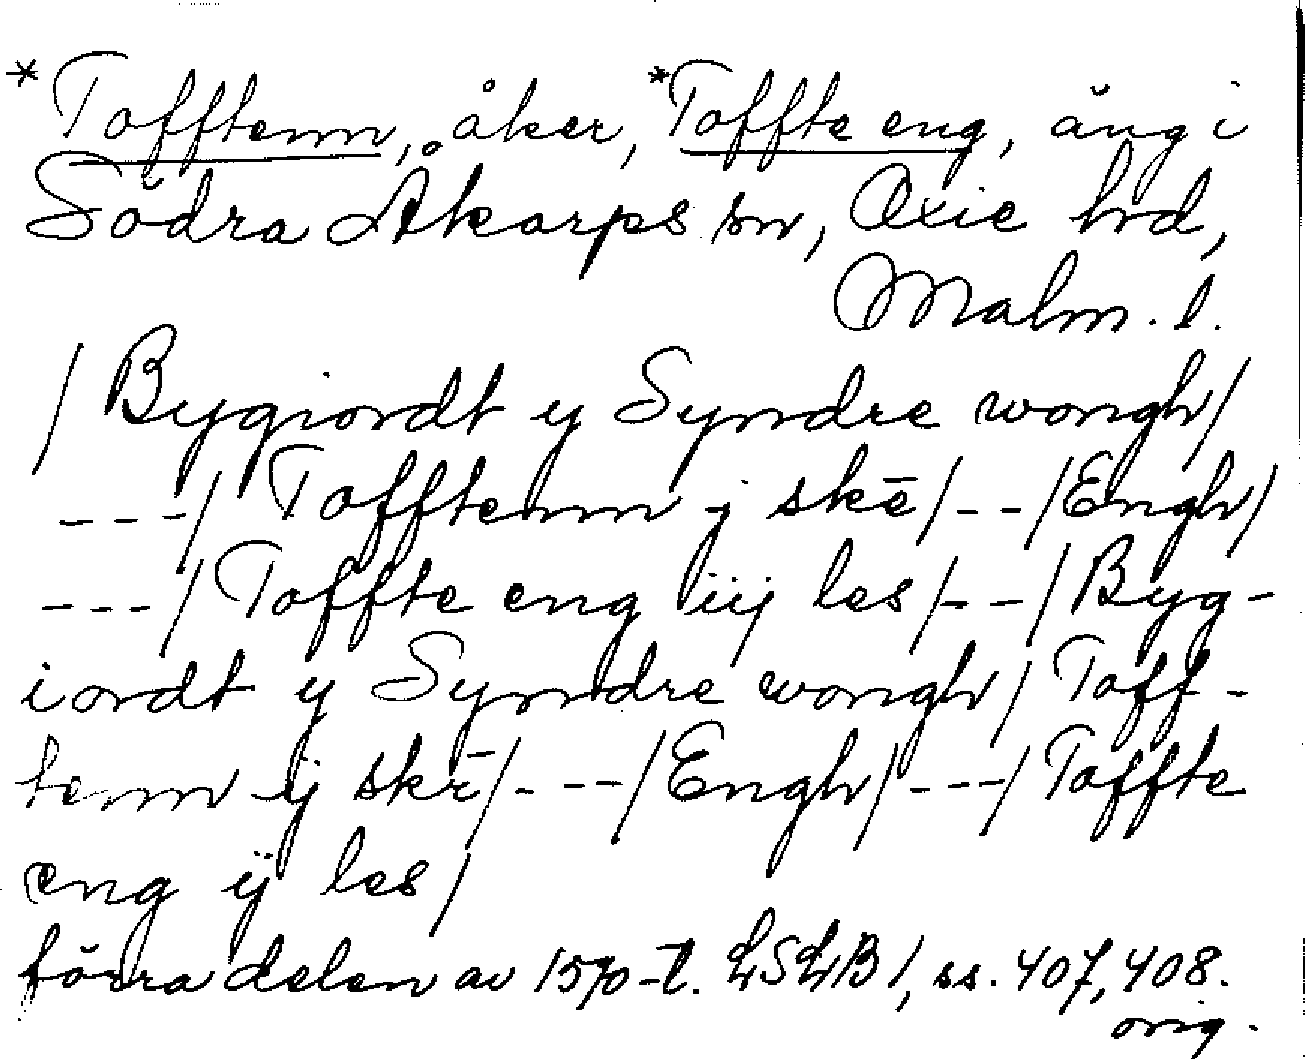 *Tofftenn, åker, *Toffte eng, äng i
Södra Åkarps sn, Oxie hrd,
Malm. l.
/ Bygiordt y Syndre wongh/
---/ Tofftenn j skē/--/Engh/
---/ Toffte eng iij les/--/Byg-
iordt y Syndre wongh/ Toff-
tenn ij skē/---/Engh/---/Toffte
eng ij les/
förra delen av 1570-t. LSLB 1, ss. 407, 408.
orig.